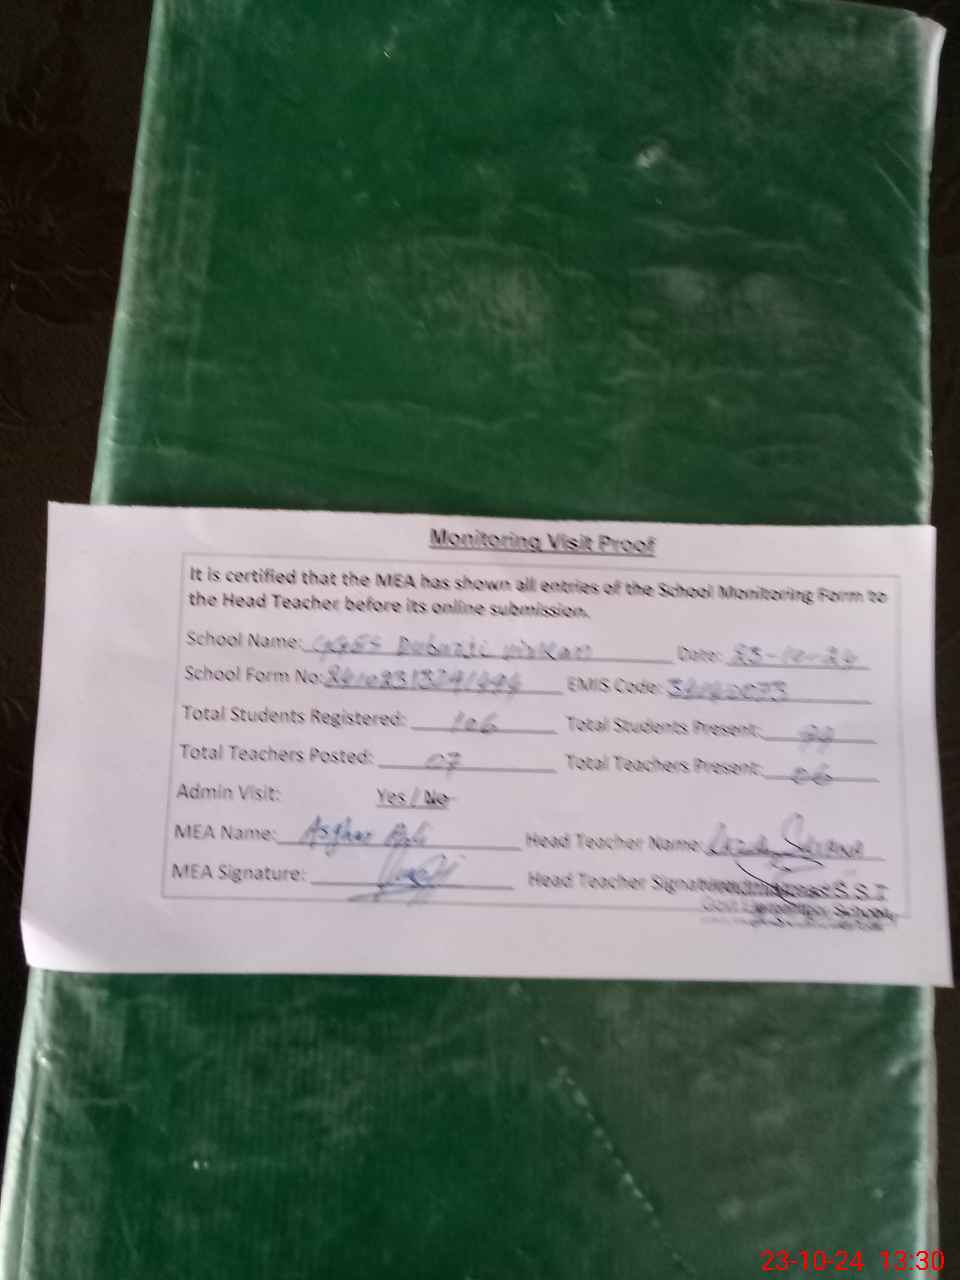 Monitoring Visit Proof
It is certified that the MEA has shown all entries of the School Monitoring Form to
the Head Teacher before its online submission.
School Name: GGES Virkan Date: 23-10-24
School Form No: EMIS Code:
Total Students Registered: 106 Total Students Present:
Total Teachers Posted: 07 Total Teachers Present: 06
Admin Visit: Yes / No
MEA Name: Asghar Ali Head Teacher Name:
MEA Signature: Head Teacher S.S.T
Govt School
23-10-24 13:30